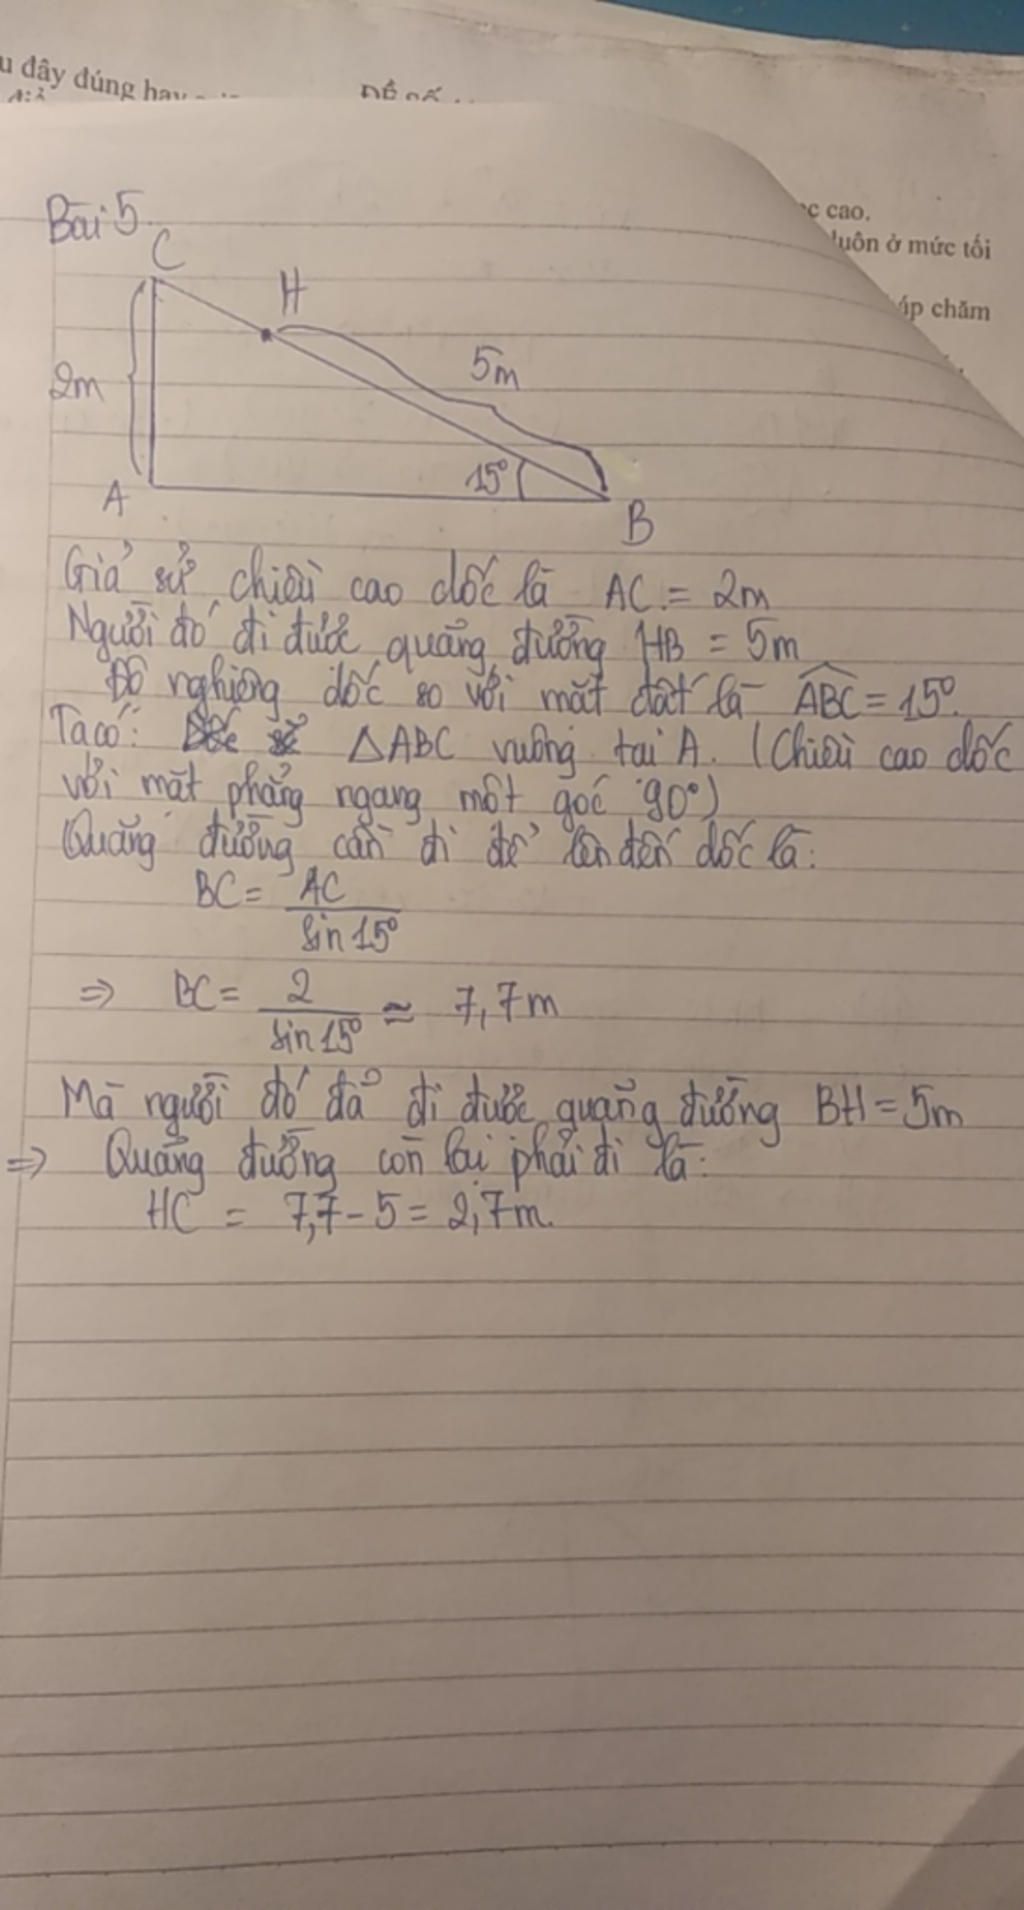 u đây đúng hay
ĐỀ SỐ
ọc cao.
luôn ở mức tối
áp chăm
Bài 5.
C
H
5m
2m
15°
A
B
Giả sử chiều cao dốc là AC = 2m
Người đó đi được quãng đường HB = 5m
Độ nghiêng dốc so với mặt đất là ABC = 15°.
Ta có: ΔABC vuông tại A. (Chiều cao dốc
với mặt phẳng ngang một góc 90°)
Quãng đường cần đi để lên đến dốc là:
BC = AC
sin 15°
=> BC = 2 ≈ 7,7m
sin 15°
Mà người đó đã đi được quãng đường BH = 5m
=> Quãng đường còn lại phải đi là:
HC = 7,7 - 5 = 2,7m.